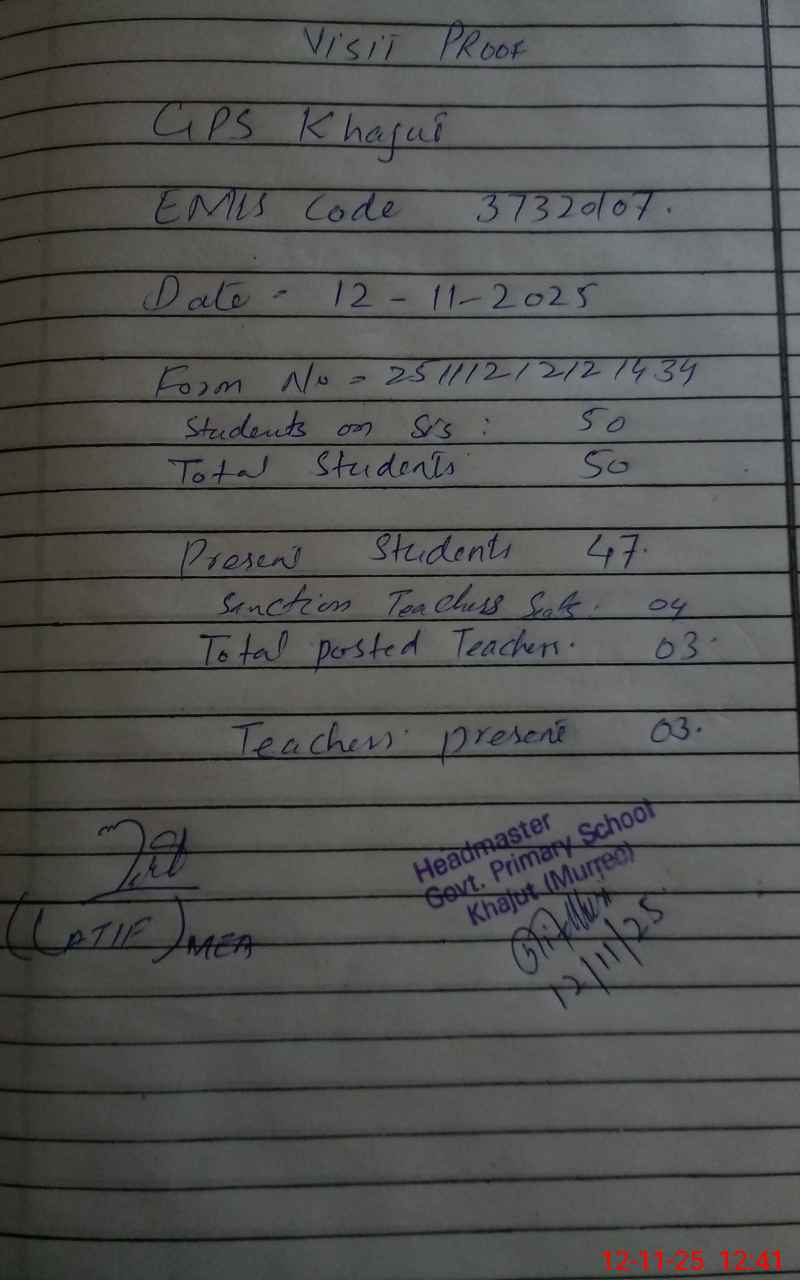 Visit Proof
GPS Khajut
EMIS Code 37320107.
Date - 12-11-2025
Form No = 25111212121434
Students on SIS : 50
Total Students 50
Present Students 47.
Sanction Teachers Seats. 04
Total posted Teachers. 03.
Teachers present 03.
Headmaster
Govt. Primary School
Khajut (Murree)
12/11/25
(LATIF) MEA
12-11-25 12:41